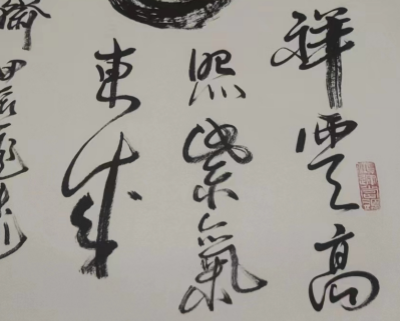 祥雲高
照紫氣
東來
甲辰